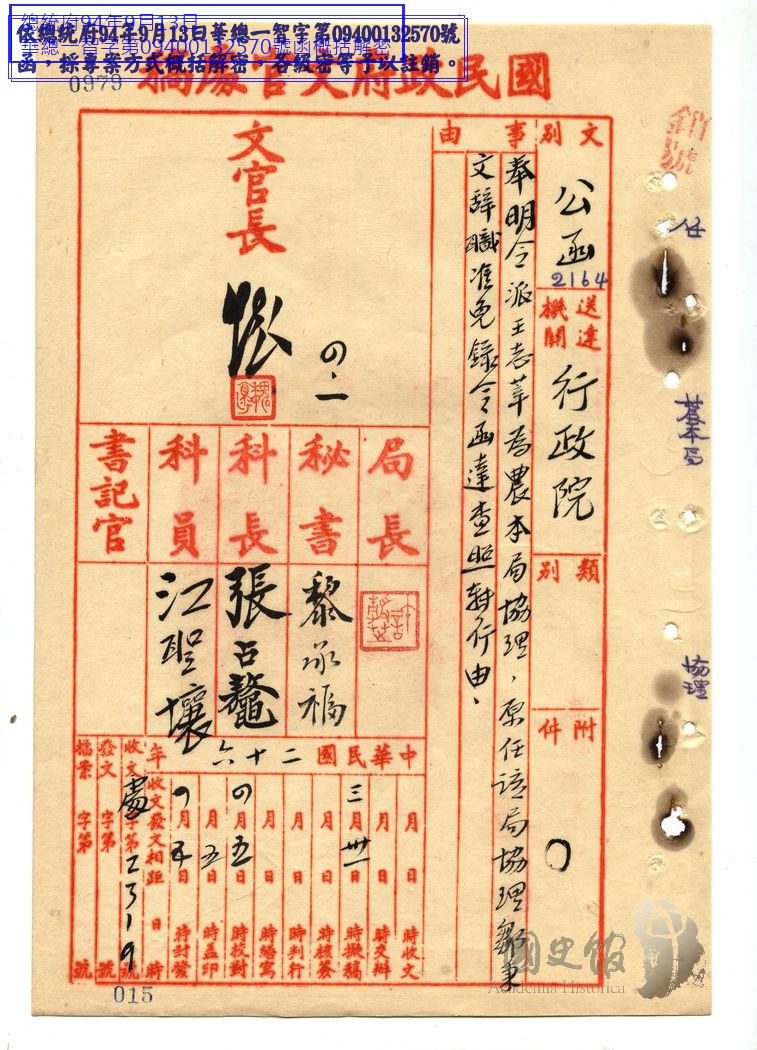 總統府94年9月13日
華總一智字第09400132570號函概括解密
依總統府94年9月13日華總一智字第09400132570號
函，採專案方式概括解密，各級密等予以註銷。
0979
國民政府文官處稿
銷號
文別
公函
2164
送達機關
行政院
類別
附件
事由
奉明令派王志莘為農本局協理，原任該局協理鄒秉
文辭職准免錄令函達查照轉行由、
文官長
四、一
局長
秘書
黎承福
科長
張占鰲
科員
江聖壤
書記官
中華民國二十六年
月 日 時收文
月 日 時交辦
三月卅一日 時擬稿
月 日 時核簽
月 日 時判行
月 日 時繕寫
四月五日 時校對
月五日 時蓋印
月五日 時封發
收文發文相距 日 時
收文處字第2319號
發文 字第 號
檔案 字第 號
基本局
協理
015
國史館
Academia Historica